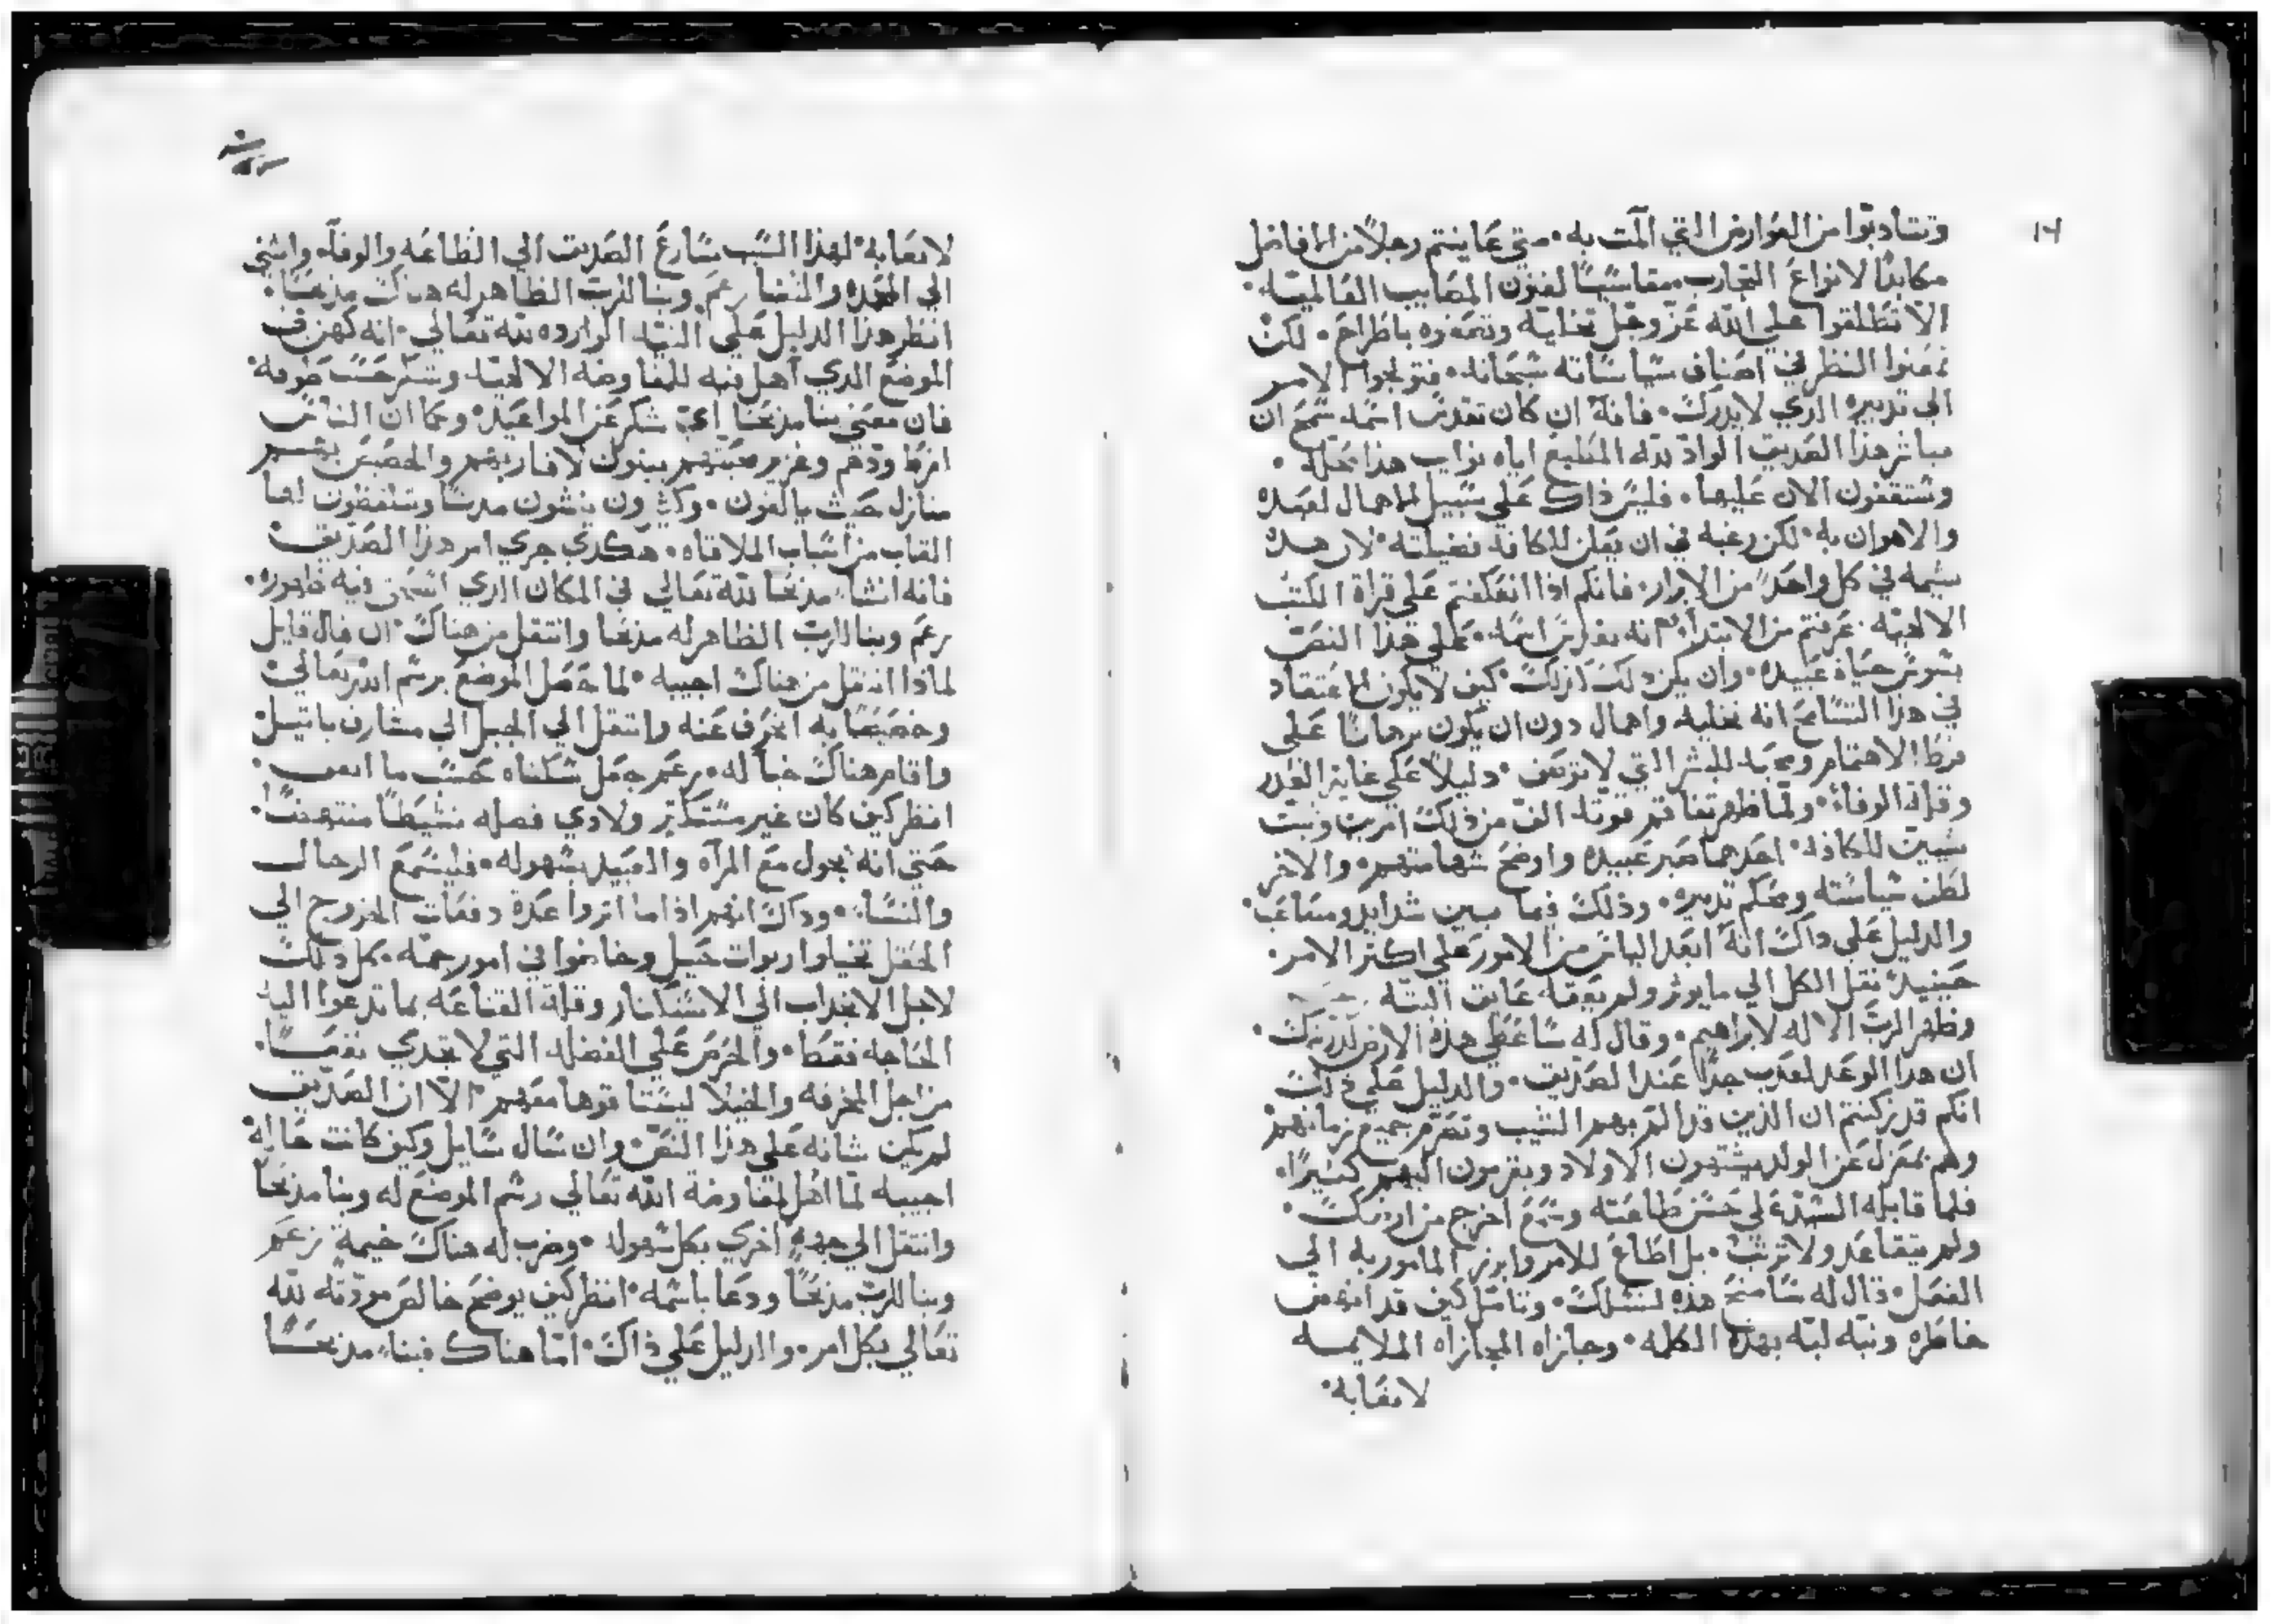 ١٢
وتتادبوا من العوارض التي المت به. متى عاينتم رجلاً من الافاضل
مكابدًا لانواع التجارب. مقاسيًا لفنون المصايب العالميه.
الا تطلقوا على الله عز وجل تخليه وتمحفوه باطراح. لكن
تمعنوا النظر في اصناف سياساته سبحانه. فتولجوا الامر
الى تدبيره الذي لا يدرك. فانه ان كان تقدس اسمه سمح ان
مباشر هذا الصديق الواد لله المطيع اياه نوايب هذا محلها.
وستقفون الان عليها. فليس ذاك على سبيل الاهمال لعبده
والاهوان به. لكن رغبه في ان يعلن للكافه فضيلته. لان هذه
شيمه في كل واحد من الابرار. فانكم اذا انعكفتم على قراة الكتب
الالهيه. عرفتم من الابتدا. انه تقدس اسمه. على هذا النص
يسوس حياة عبيده. وان يكن ذلك كذلك. كيف لا يكون الاعتقاد
في هذا التسامح انه تخليه واهمال دون ان يكون برهانًا على
فرط الاهتمام ومحبه للبشر التي لا توصف. دليلاً على غاية الغدر
وقلة الوفاء. ولما ظهر تفاقم قوته الف من ذلك امرين وثبت
تثبيت للكافه. احدهما صبر عبيده واوضح شهامتهم. والاخر
لطف سياسته ومحكم تدبيره. وذلك فيما بين شدايد ومتاعب.
والدليل على ذاك انه ابعد الياس من الامور على اكثر الامر.
حينيد نقل الكل الى ما يوثر ولم يعقه عايق البته
وظهر الرب الاله لابراهيم. وقال له ساعطي هذه الارض لزرعك.
ان هذا الوعد لعذب جدًا عند الصديق. والدليل على ذلك
انكم قد زكنتم ان الذين قد الم بهم الشيب وتصرم جميع زمانهم
وهم بمعزل عن الولد يشتهون الاولاد ويقرمون اليهم كثيرًا.
فلما قابله السيد على حسن طاعته وسمع اخرج من ارضك.
ولم يتقاعد ولا تريث. بل اطاع للامر وابرز المامور به الى
الفعل. قال له سامنح هذه لنسلك. وتامل كيف قد انهض
خاطره ونبه لبه بهذه الكلمه. وجازاه المجازاه الملايمه
لاتعابه.
لاتعابه. لهذا السبب سارع الصديق الى الطاعه والوفا. وانثنى
الى المجد والثنا زعم وبنا للرب الظاهر له هناك مذبحًا.
انظر هذا الدليل على النيه الواروده لله تعالى. انه كهن في
الموضع الذي اهل فيه للمفاوضه الالهيه. وشكر حسب طوقه.
فان معنى بنا مذبحًا اي شكر عن المواعيد. وكما ان الناس
افرط ودهم وغزير محبتهم يبنون لاقاربهم والمحبين بهم
منازل حيث يالفون. وكثيرون ينشون مدنًا ويستنبطون لها
القاب من اسباب الملاقاه. هكدي جرى امر هذا الصديق
فانه انشاء مذبحًا لله تعالى في المكان الذي استحق فيه ظهوره.
زعم وبنا للرب الظاهر له مذبحًا وانتقل من هناك. ان قال قايل
لماذا انتقل من هناك اجيبه. لما جعل الموضع برسم الله تعالى
وخصيصًا به انحرف عنه وانتقل الى الجبل الى مشارق باتيل
واقام هناك خباً له. زعم جعل سكناه كحسب ما اتفق.
انظر كيف كان غير مستكثر ولا ذي فضله نشيطًا منتهضًا.
حتى انه يجول مع المرأه والعبيد بسهوله. فليسمع الرجال
والنساء. وذاك انهم اذا ما اثروا عدة دفعات الخروج الى
الحقل تخيلوا ربوات حيل وخاضوا في امور جمه. كل ذلك
لاجل الانجذاب الى الاستكثار وقلة القناعه بما تدعوا اليه
الحاجه فقط. والحرص على الفضله التي لا تجدي نفعًا.
من اجل المخرفه والخيلا ليستاقوها معهم. الا ان الصديق
لم يكن شانه على هذا النص. وان سال سايل وكيف كانت حاله
اجيبه لما اهل لمفاوضة الله تعالى رسم الموضع له وبنا مذبحًا
وانتقل الى جهةٍ اخرى بكل سهوله. وضرب له هناك خيمة زعم
وبنا للرب مذبحًا ودعا باسمه. انظر كيف يوضح خالص مودته لله
تعالى بكل امر. والدليل على ذاك. اما هناك فبناء مذبحًا